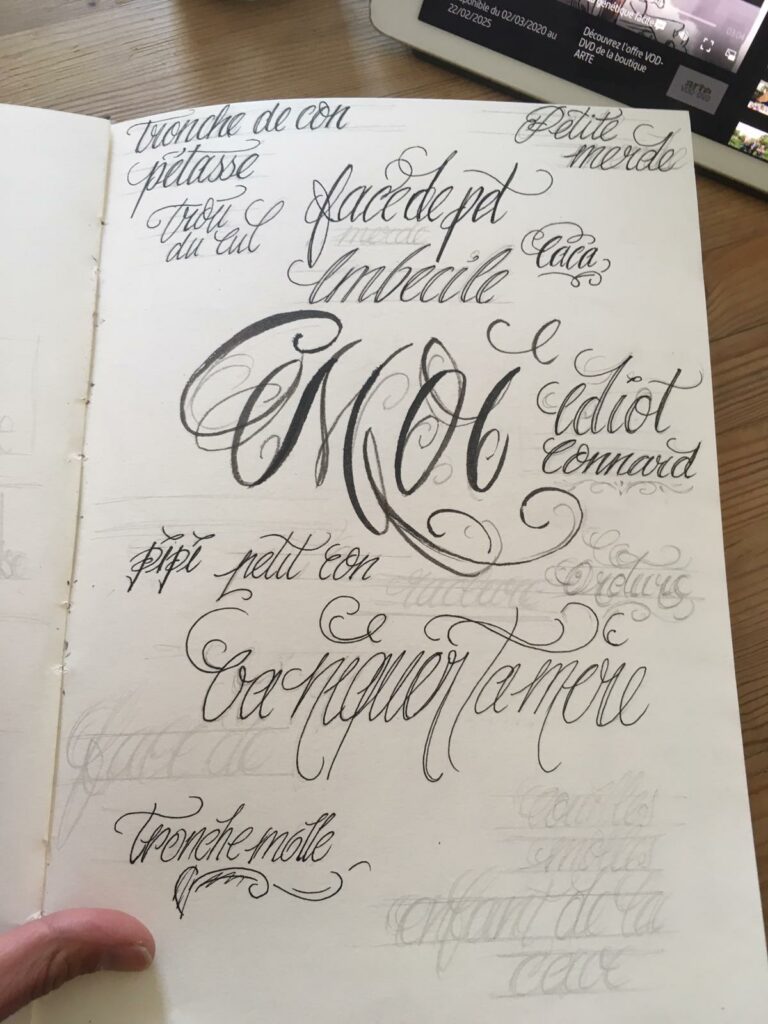 disponible du 02/03/2020 au
22/02/2025
Découvrez l'offre VOD-
DVD de la boutique
ARTE
arte
VOD DVD
03:04
tronche de con
pétasse
trou
du cul
Petite
merde
face de pet
merde
caca
Imbécile
MOI
idiot
connard
pipi
petit con
ordure
va niquer ta mère
face de
tronche molle
couilles
molles
enfant de la
cave